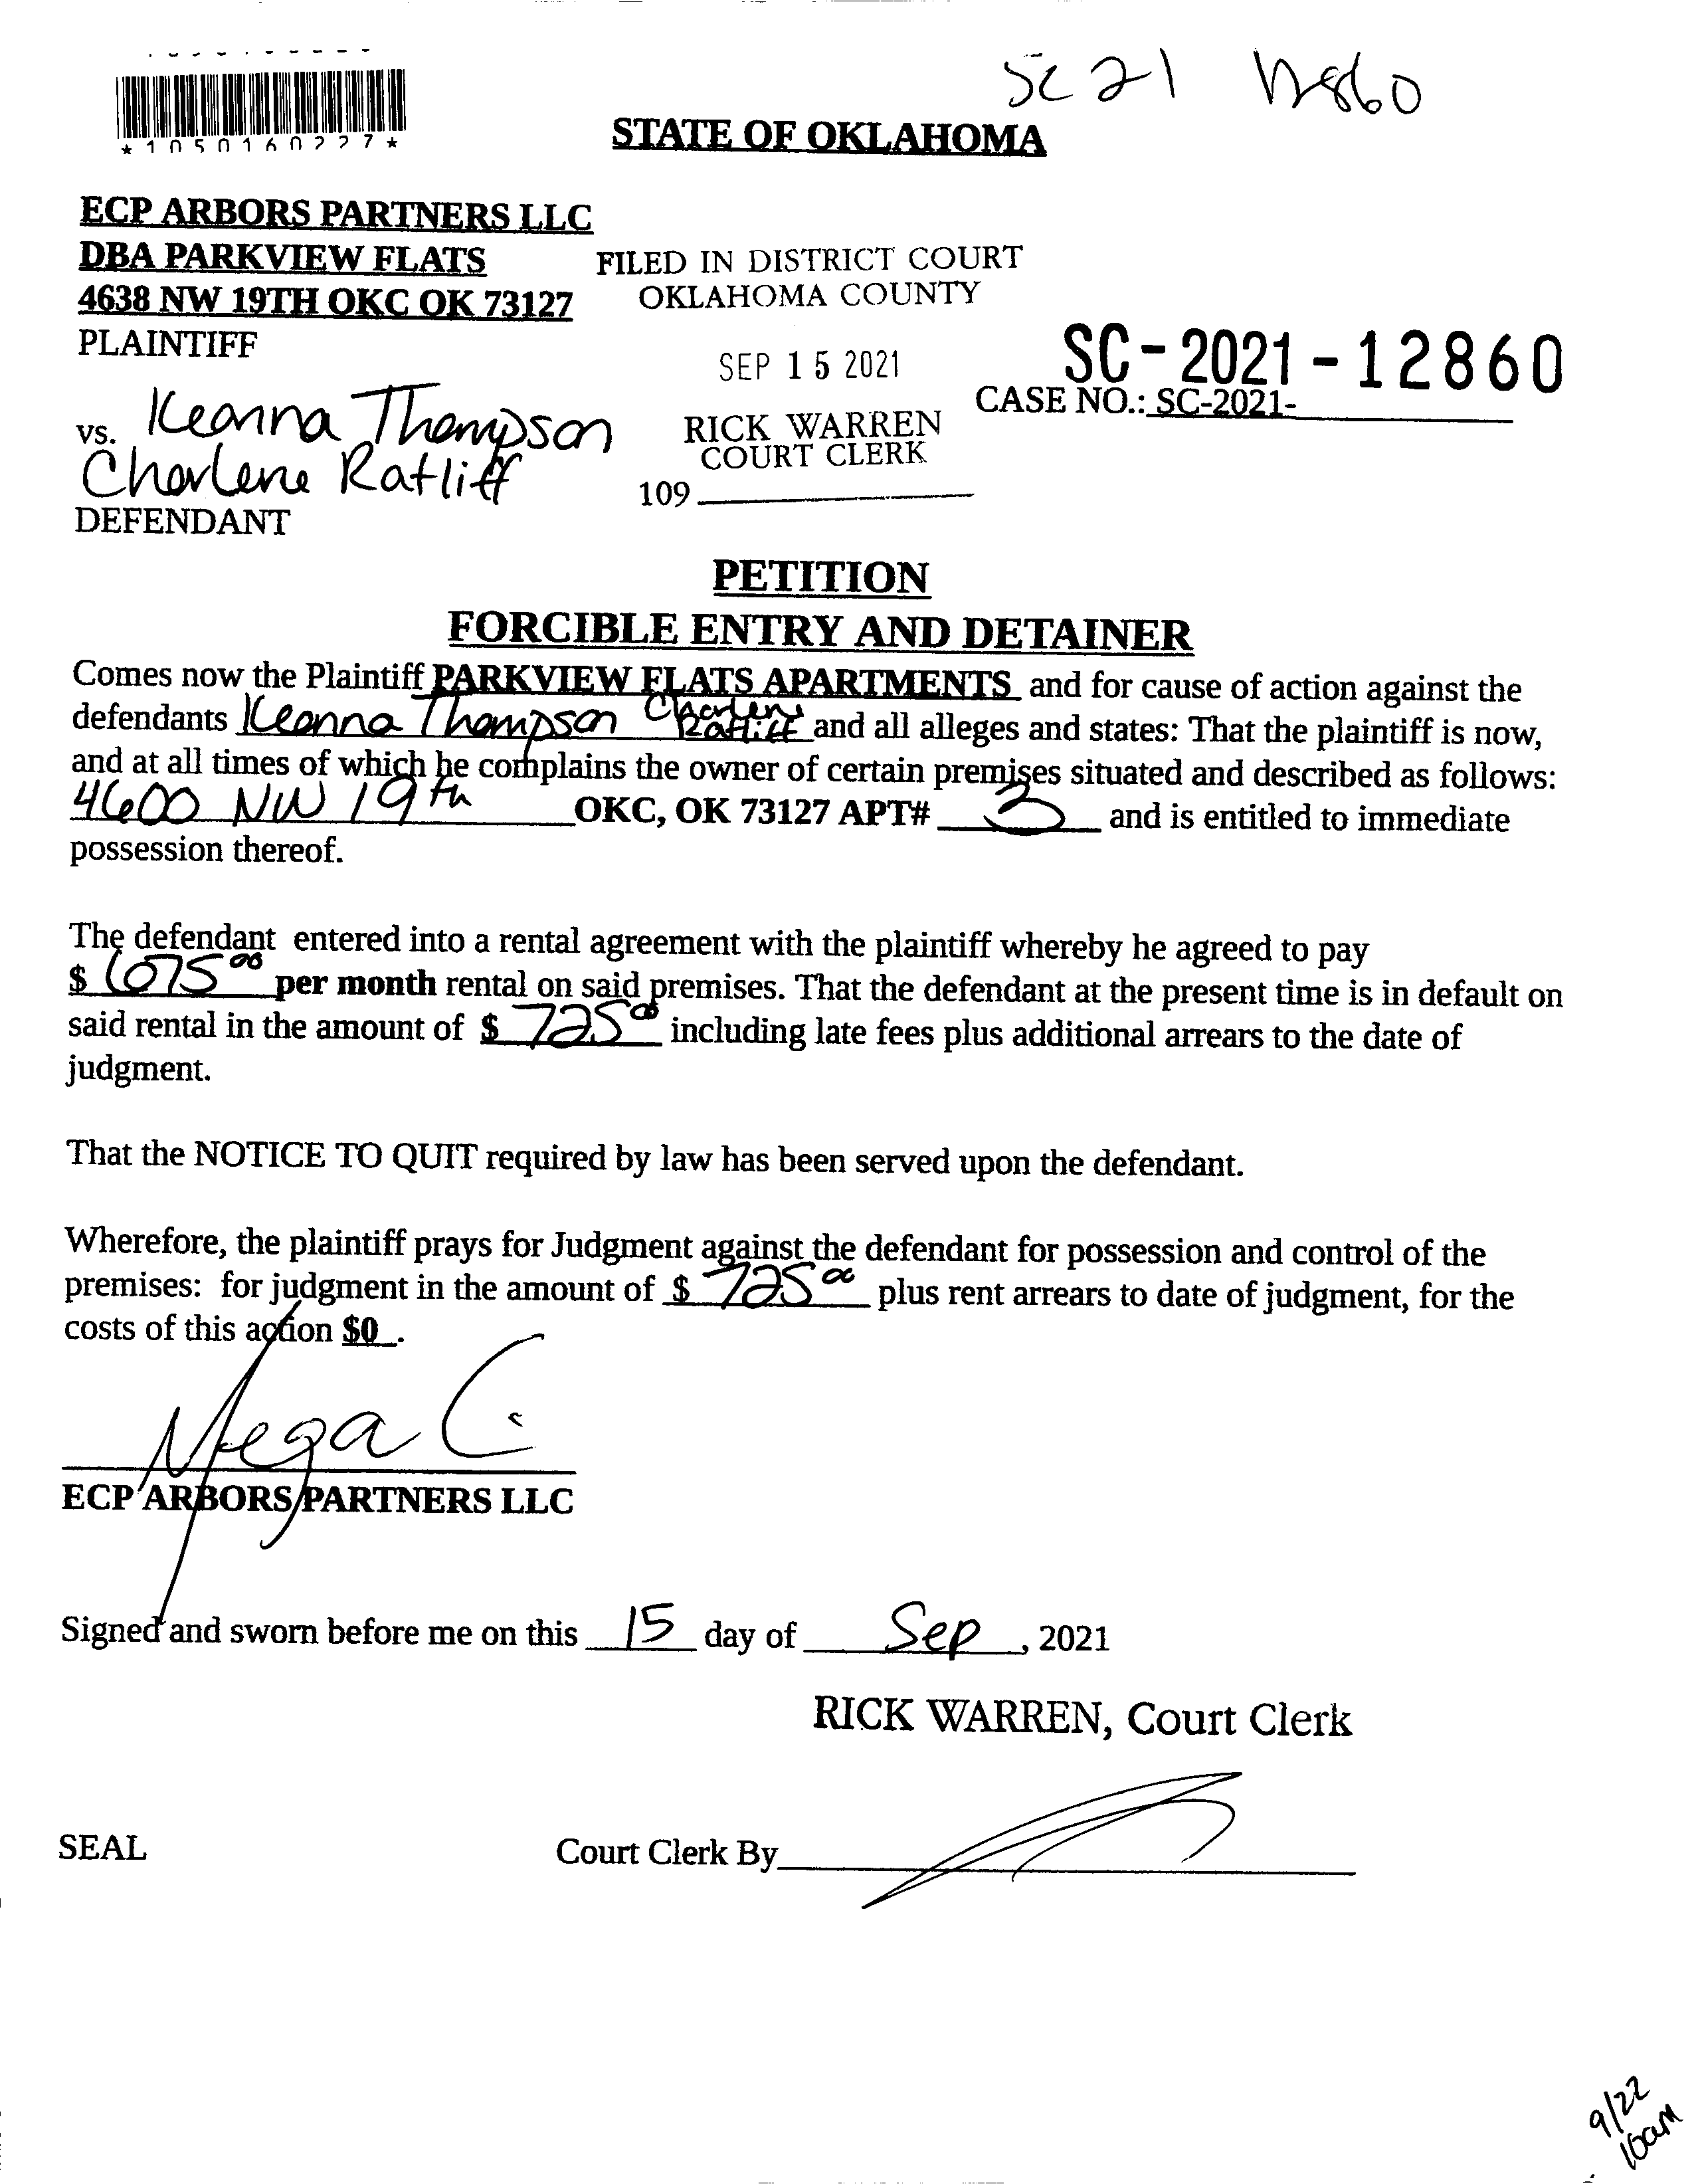 SC 21 12860
*1050160227*
STATE OF OKLAHOMA
ECP ARBORS PARTNERS LLC
DBA PARKVIEW FLATS
4638 NW 19TH OKC OK 73127
PLAINTIFF
FILED IN DISTRICT COURT
OKLAHOMA COUNTY
SEP 15 2021
RICK WARREN
COURT CLERK
109
SC-2021-12860
CASE NO.: SC-2021-
vs. Keanna Thompson
Charlene Ratliff
DEFENDANT
PETITION
FORCIBLE ENTRY AND DETAINER
Comes now the Plaintiff PARKVIEW FLATS APARTMENTS and for cause of action against the
defendants Keanna Thompson Charlene Ratliff and all alleges and states: That the plaintiff is now,
and at all times of which he complains the owner of certain premises situated and described as follows:
4600 NW 19th OKC, OK 73127 APT# 3 and is entitled to immediate
possession thereof.
The defendant entered into a rental agreement with the plaintiff whereby he agreed to pay
$ 675 00 per month rental on said premises. That the defendant at the present time is in default on
said rental in the amount of $ 725 00 including late fees plus additional arrears to the date of
judgment.
That the NOTICE TO QUIT required by law has been served upon the defendant.
Wherefore, the plaintiff prays for Judgment against the defendant for possession and control of the
premises: for judgment in the amount of $ 725 00 plus rent arrears to date of judgment, for the
costs of this action $0 .
Mega C.
ECP ARBORS PARTNERS LLC
Signed and sworn before me on this 15 day of Sep , 2021
RICK WARREN, Court Clerk
SEAL
Court Clerk By
9/22
10am